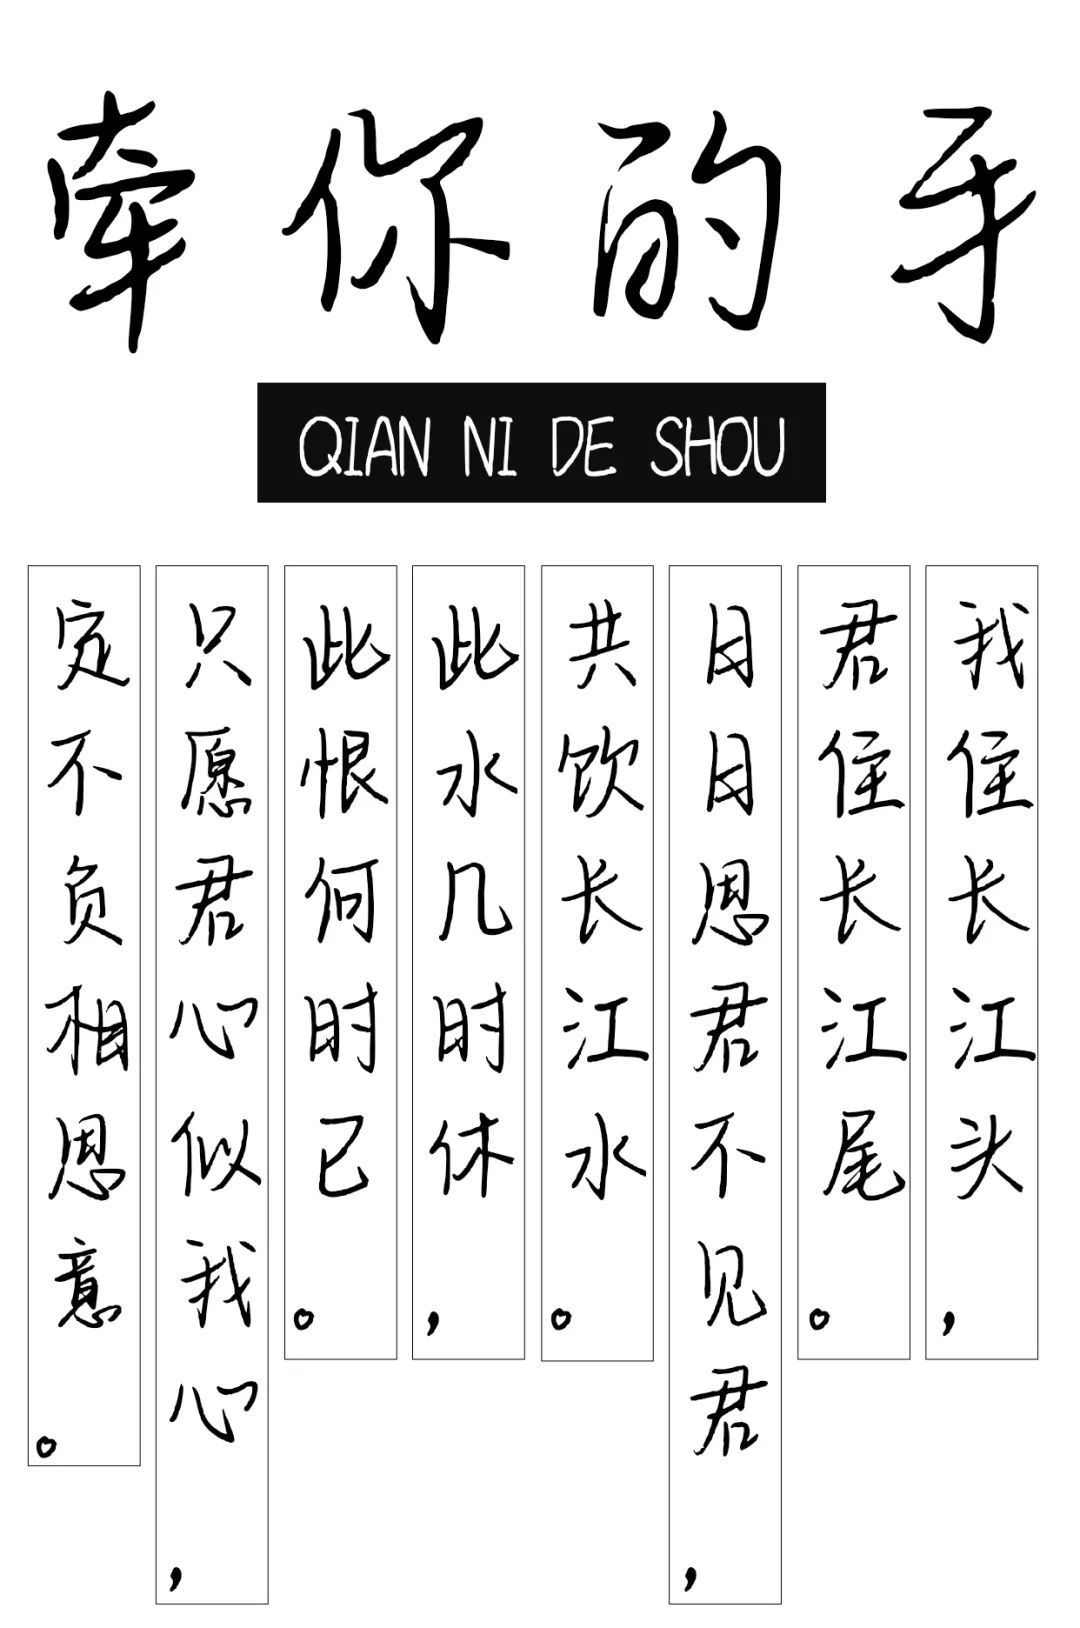 牵你的手
QIAN NI DE SHOU
我住长江头，
君住长江尾。
日日思君不见君，
共饮长江水。
此水几时休，
此恨何时已。
只愿君心似我心，
定不负相思意。